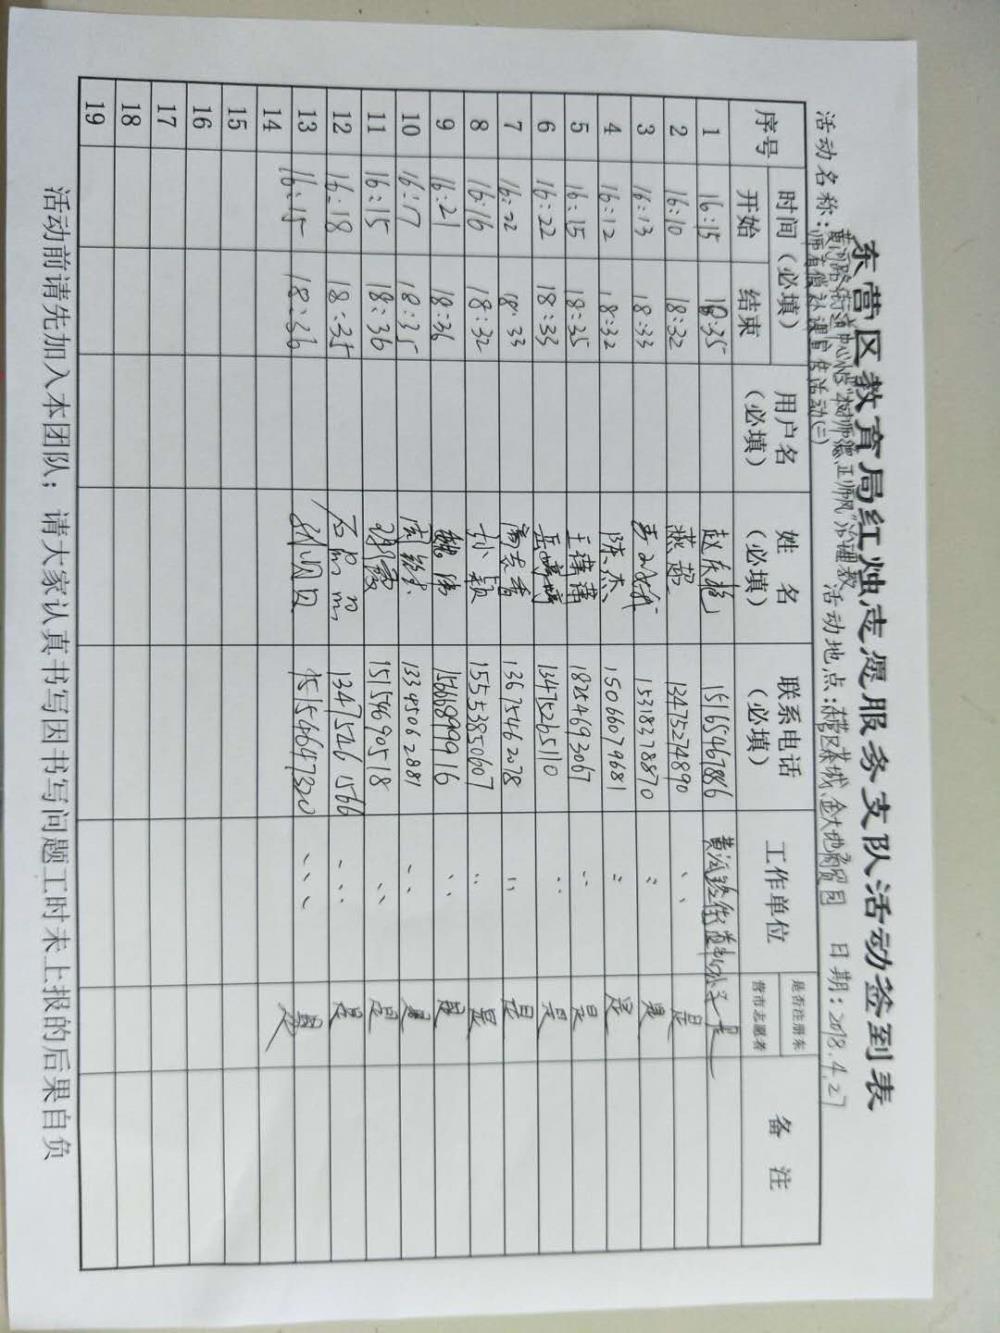 东营区教育局红烛志愿服务支队活动签到表
活动名称：黄河路街道中心校"树师德、正师风"治理教 活动地点：东营区泰城、金大地商贸园 日期：2018.4.27
师有偿补课宣传活动(二)
序号 时间（必填） 用户名（必填） 姓名（必填） 联系电话（必填） 工作单位 是否注册东营市志愿者 备注
开始 结束
1 16:15 18:35 15165467886 黄河路街道中心校 是
2 16:10 18:32 燕超 13475274890 〃 是
3 16:13 18:33 15318378870 〃 是
4 16:12 18:32 陈杰 15066079681 〃 是
5 16:15 18:35 18254693067 〃 是
6 16:22 18:33 13475265110 〃 是
7 16:22 18:33 13675462078 〃 是
8 16:16 18:32 孙颖 15553850607 〃 是
9 16:21 18:36 魏浩 15668999916 〃 是
10 16:17 18:35 13345062881 〃 是
11 16:15 18:36 15154690518 〃 是
12 16:18 18:35 石丽丽 13475461566 〃 是
13 16:15 18:36 15154647320 〃 是
14
15
16
17
18
19
活动前请先加入本团队；请大家认真书写因书写问题工时未上报的后果自负